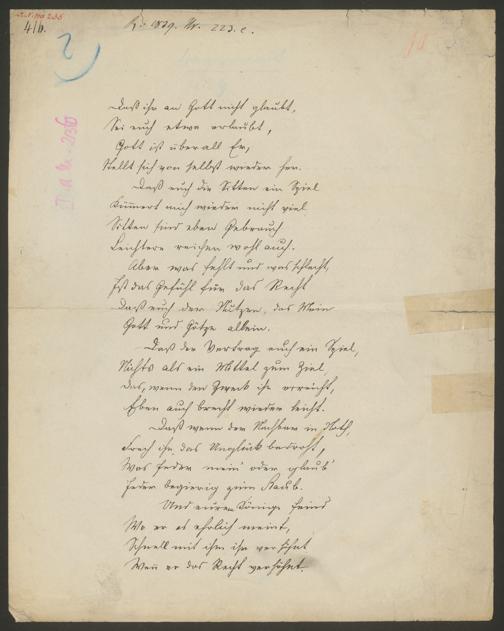 4/b.
R: 1839. Nr. 223. c.
2
Daß ihr an Gott nicht glaubt,
Sei euch etwa erlaubt,
Gott ist überall Er,
Stellt sich von selbst wieder her.
Daß euch die Sitten ein Spiel
Kümmert mich wieder nicht viel
Sitten sind eben Gebrauch
Leichtere reichen wohl auch.
Aber was fehlt und was schlecht,
Ist das Gefühl für das Recht
Daß euch der Nutzen, das Mein
Gott und Götze allein.
Daß der Vertrag euch ein Spiel,
Nichts als ein Mittel zum Ziel,
Das, wenn den Zweck ihr erreicht,
Eben auch brecht wieder leicht.
Daß wenn der Nachbar in Noth,
Frech ihr, das Unglück bedroht,
Was jeder mein' oder glaub'
Jeder begierig zum Raub.
Und eurem Könige feind
Wo er es ehrlich meint,
Schnell mit ihm ihr versöhnt
Wenn er das Recht verhöhnt.